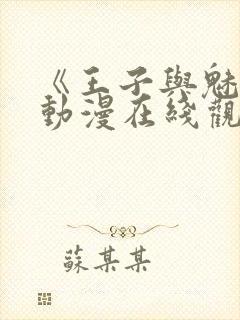 《王子與魅
動漫在綫觀
蘇某某